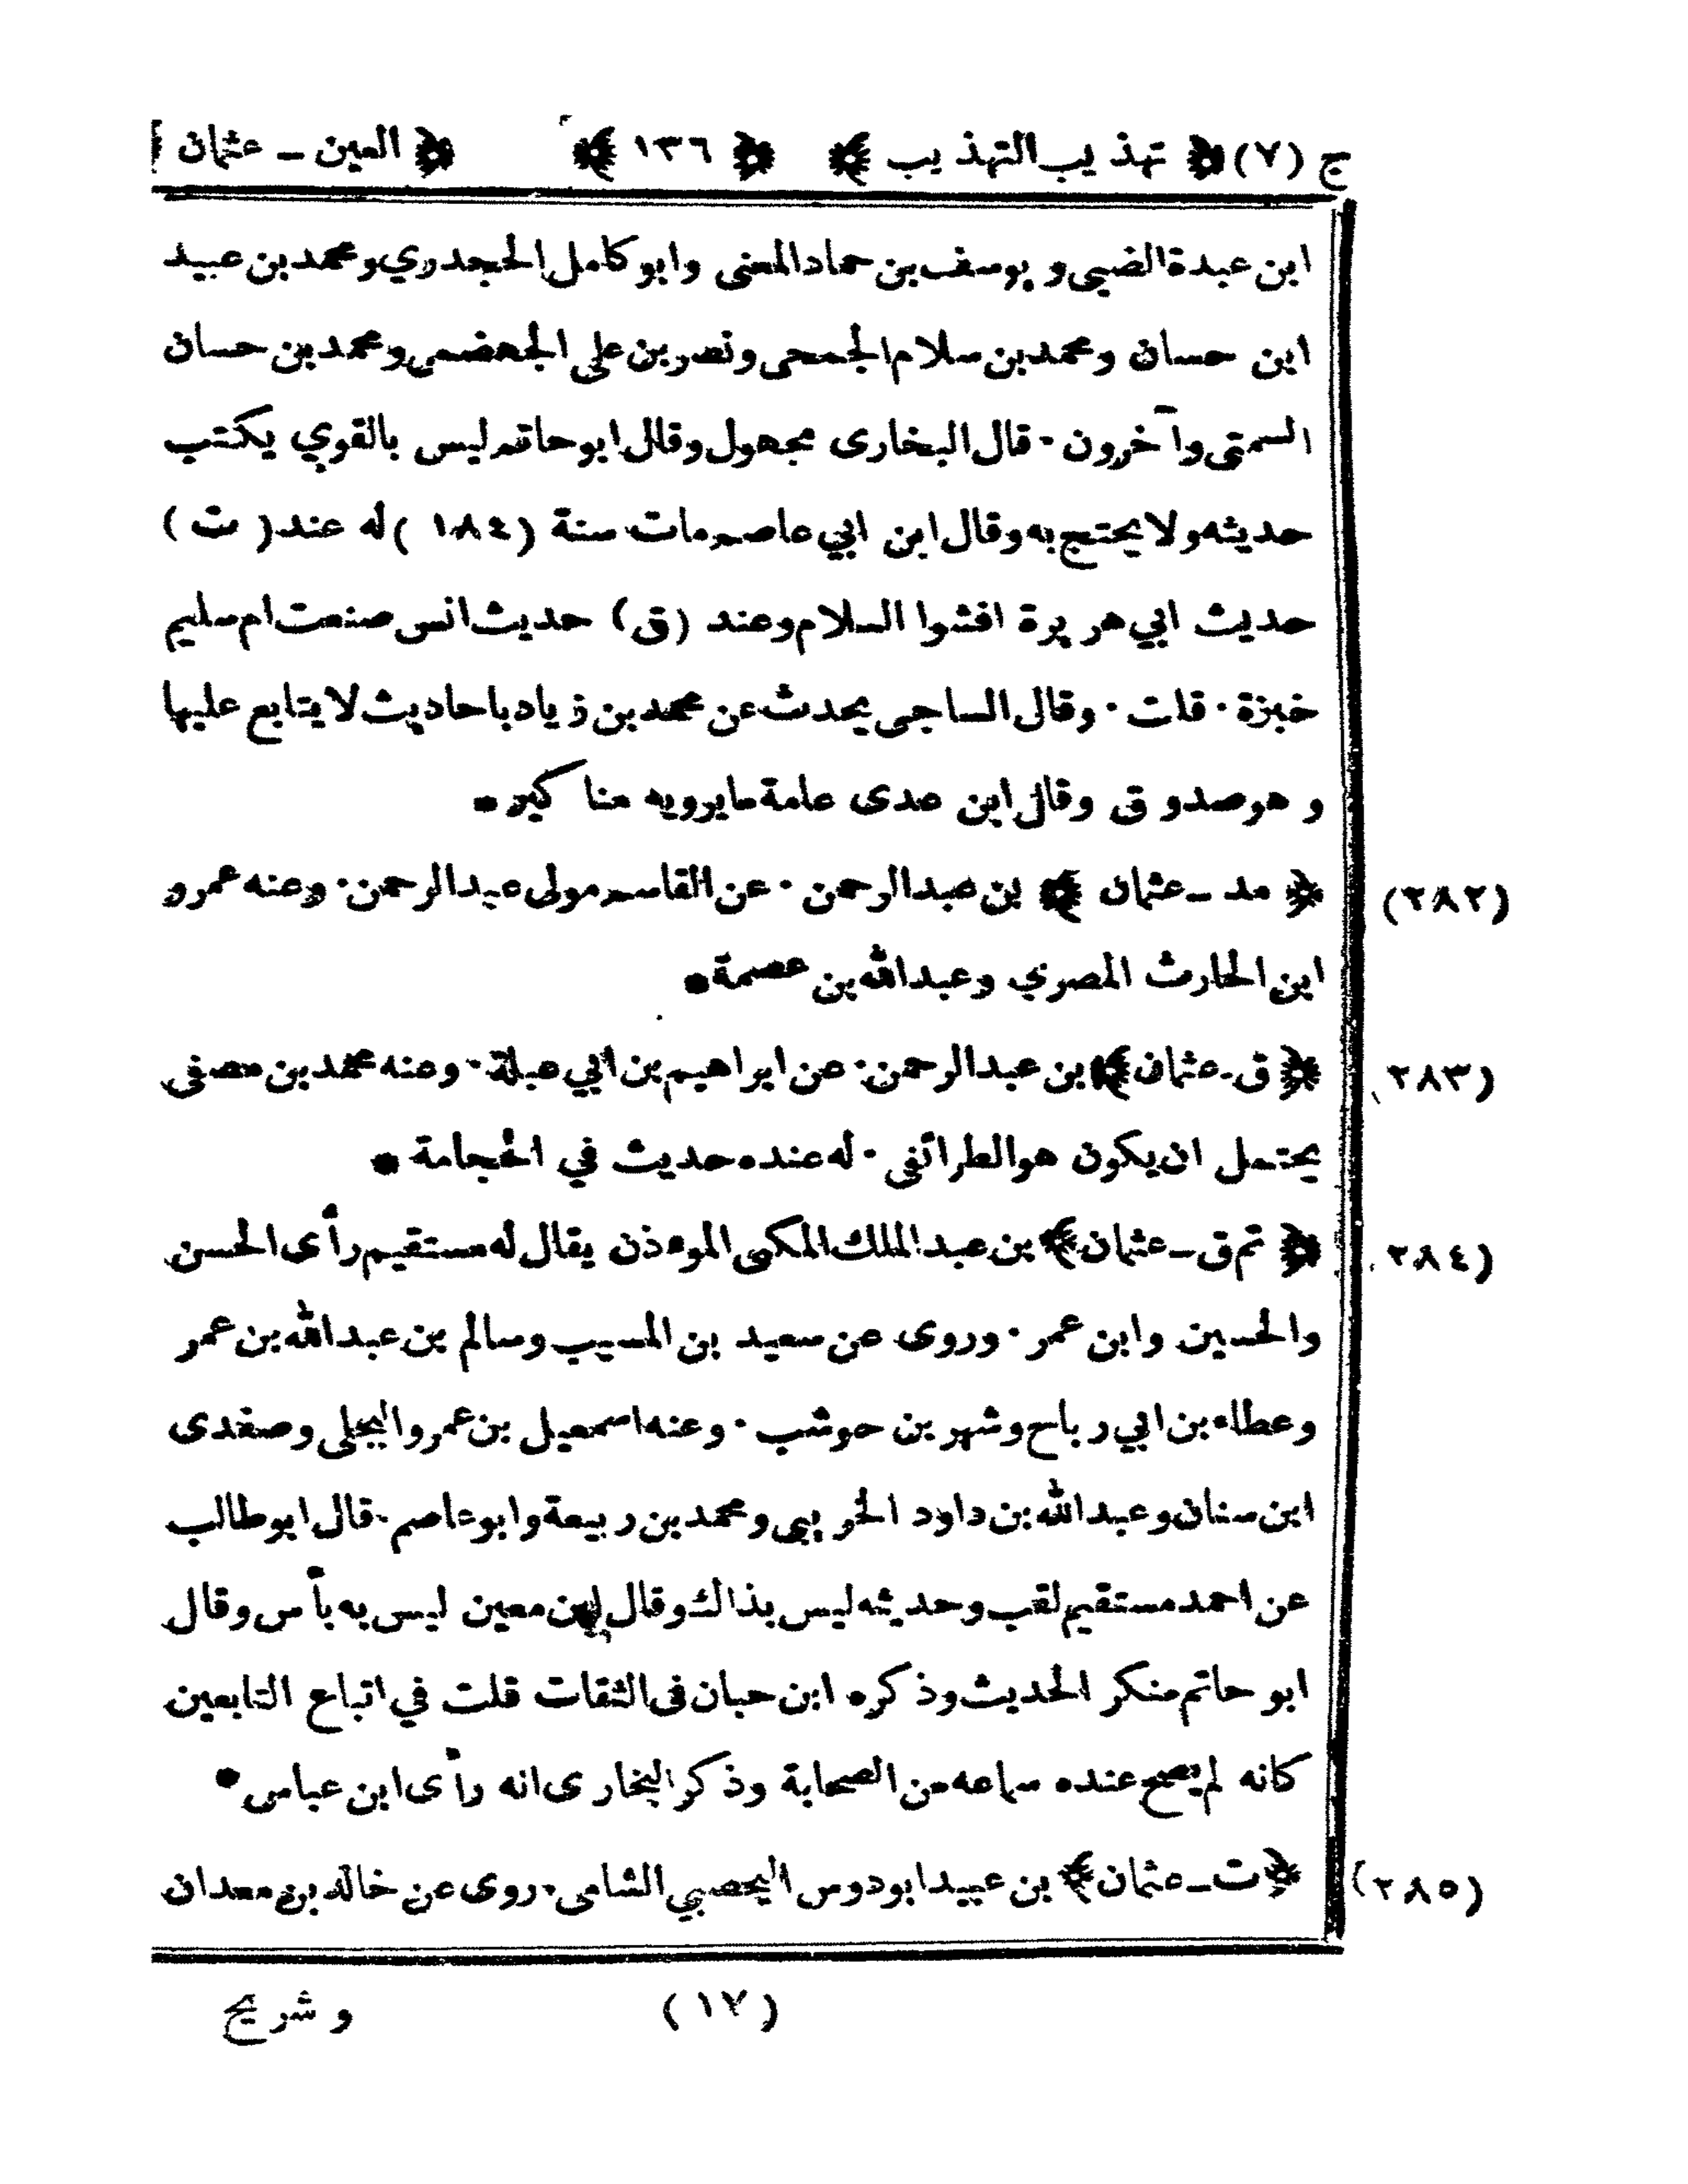 ج (٧) ﴿ تهذيب التهذيب ﴾ ﴿ ١٣٦ ﴾ ﴿ العين ـ عثمان ﴾
ابن عبدة الضبي و يوسف بن حماد المعنى وابو كامل الجحدري ومحمد بن عبيد
ابن حسان ومحمد بن سلام الجمحى ونصر بن على الجهضمى ومحمد بن حسان
السمتى وآخرون · قال البخارى مجهول وقال ابو حاتم ليس بالقوي يكتب
حديثه ولا يحتج به وقال ابن ابي عاصم مات سنة ( ١٨٤ ) له عند ( ت )
حديث ابي هريرة افشوا السلام وعند (ق) حديث انس صنعت ام سليم
خبزة · قلت · وقال الساجى يحدث عن محمد بن زياد باحاديث لا يتابع عليها
و هو صدوق وقال ابن عدى عامة ما يرويه مناكير •
(٢٨٢) ﴿ مد ـ عثمان ﴾ بن عبد الرحمن · عن القاسم مولى عبد الرحمن · وعنه عمرو
ابن الحارث المصري وعبد الله بن عصمة •
(٢٨٣) ﴿ ق ـ عثمان ﴾ بن عبد الرحمن · عن ابراهيم بن ابي عبلة · وعنه محمد بن مصفى
يحتمل ان يكون هو الطرائفى · له عنده حديث في الحجامة •
(٢٨٤) ﴿ تم ق ـ عثمان ﴾ بن عبد الملك المكى الموءذن يقال له مستقيم رأى الحسن
والحسين وابن عمر · وروى عن سعيد بن المسيب وسالم بن عبد الله بن عمر
وعطاء بن ابي رباح وشهر بن حوشب · وعنه اسمعيل بن عمرو البجلى وصغدى
ابن سنان وعبد الله بن داود الخريبى ومحمد بن ربيعة وابو عاصم · قال ابو طالب
عن احمد مستقيم لقب وحديثه ليس بذاك وقال ابن معين ليس به بأس وقال
ابو حاتم منكر الحديث وذكره ابن حبان فى الثقات قلت في اتباع التابعين
كانه لم يصح عنده سماعه من الصحابة وذكر البخارى انه رأى ابن عباس •
(٢٨٥) ﴿ ت ـ عثمان ﴾ بن عبيد ابو دوس اليحصبي الشامى · روى عن خالد بن معدان
(١٧) و شريح